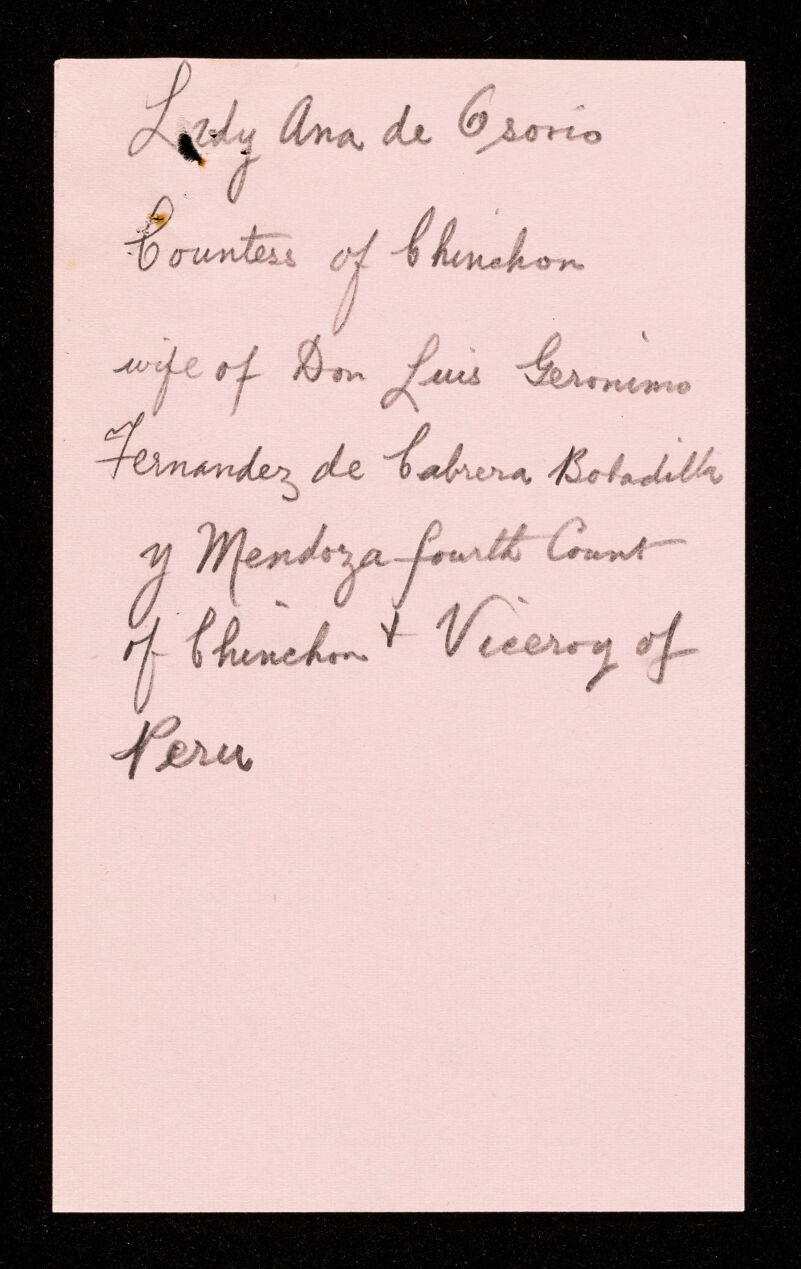 Lady Ana de Osorio
Countess of Chinchon
wife of Don Luis Geronimo
Fernandez de Cabrera Bobadilla
y Mendoza fourth Count
of Chinchon + Viceroy of
Peru